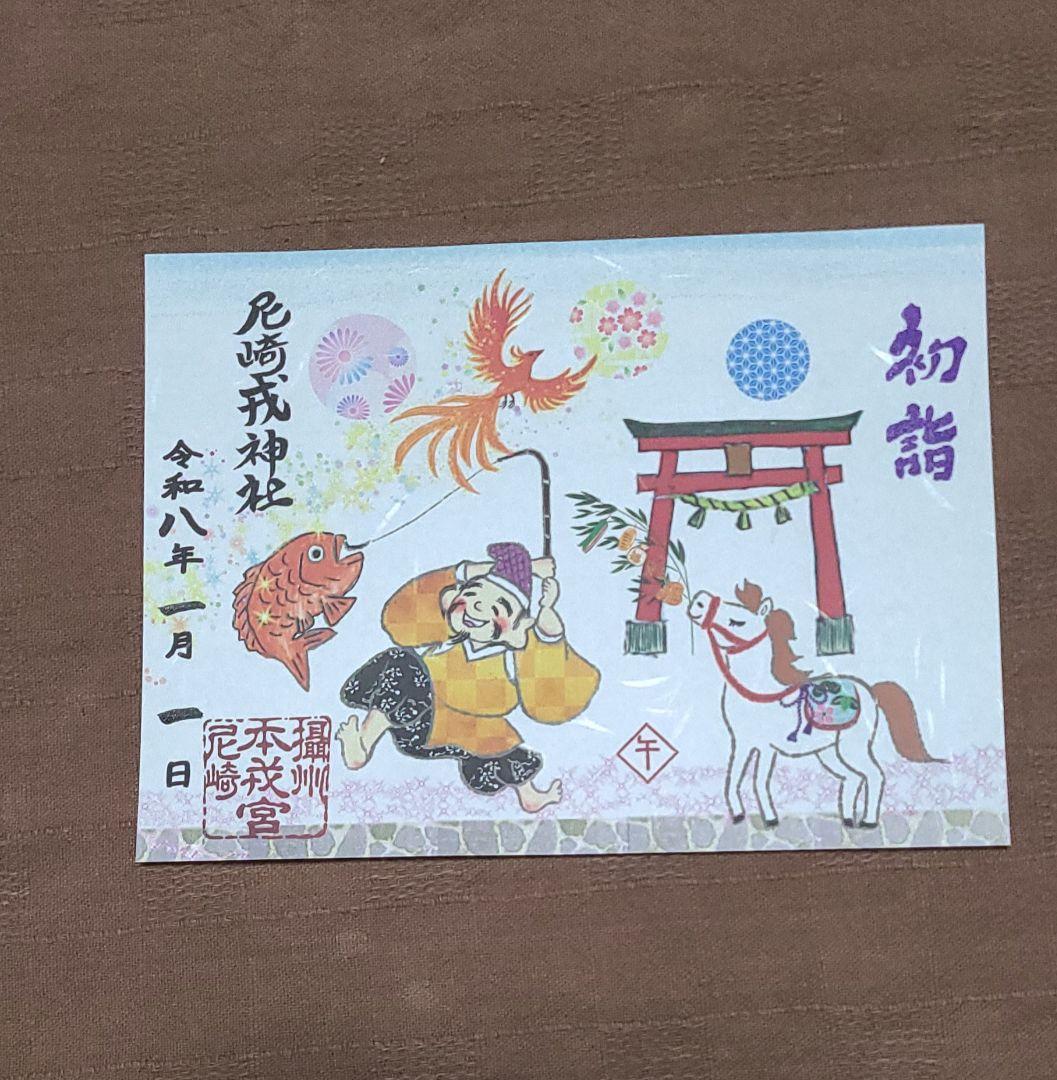 初詣
尼崎戎神社
令和八年一月一日
攝州
本戎宮
尼崎
午